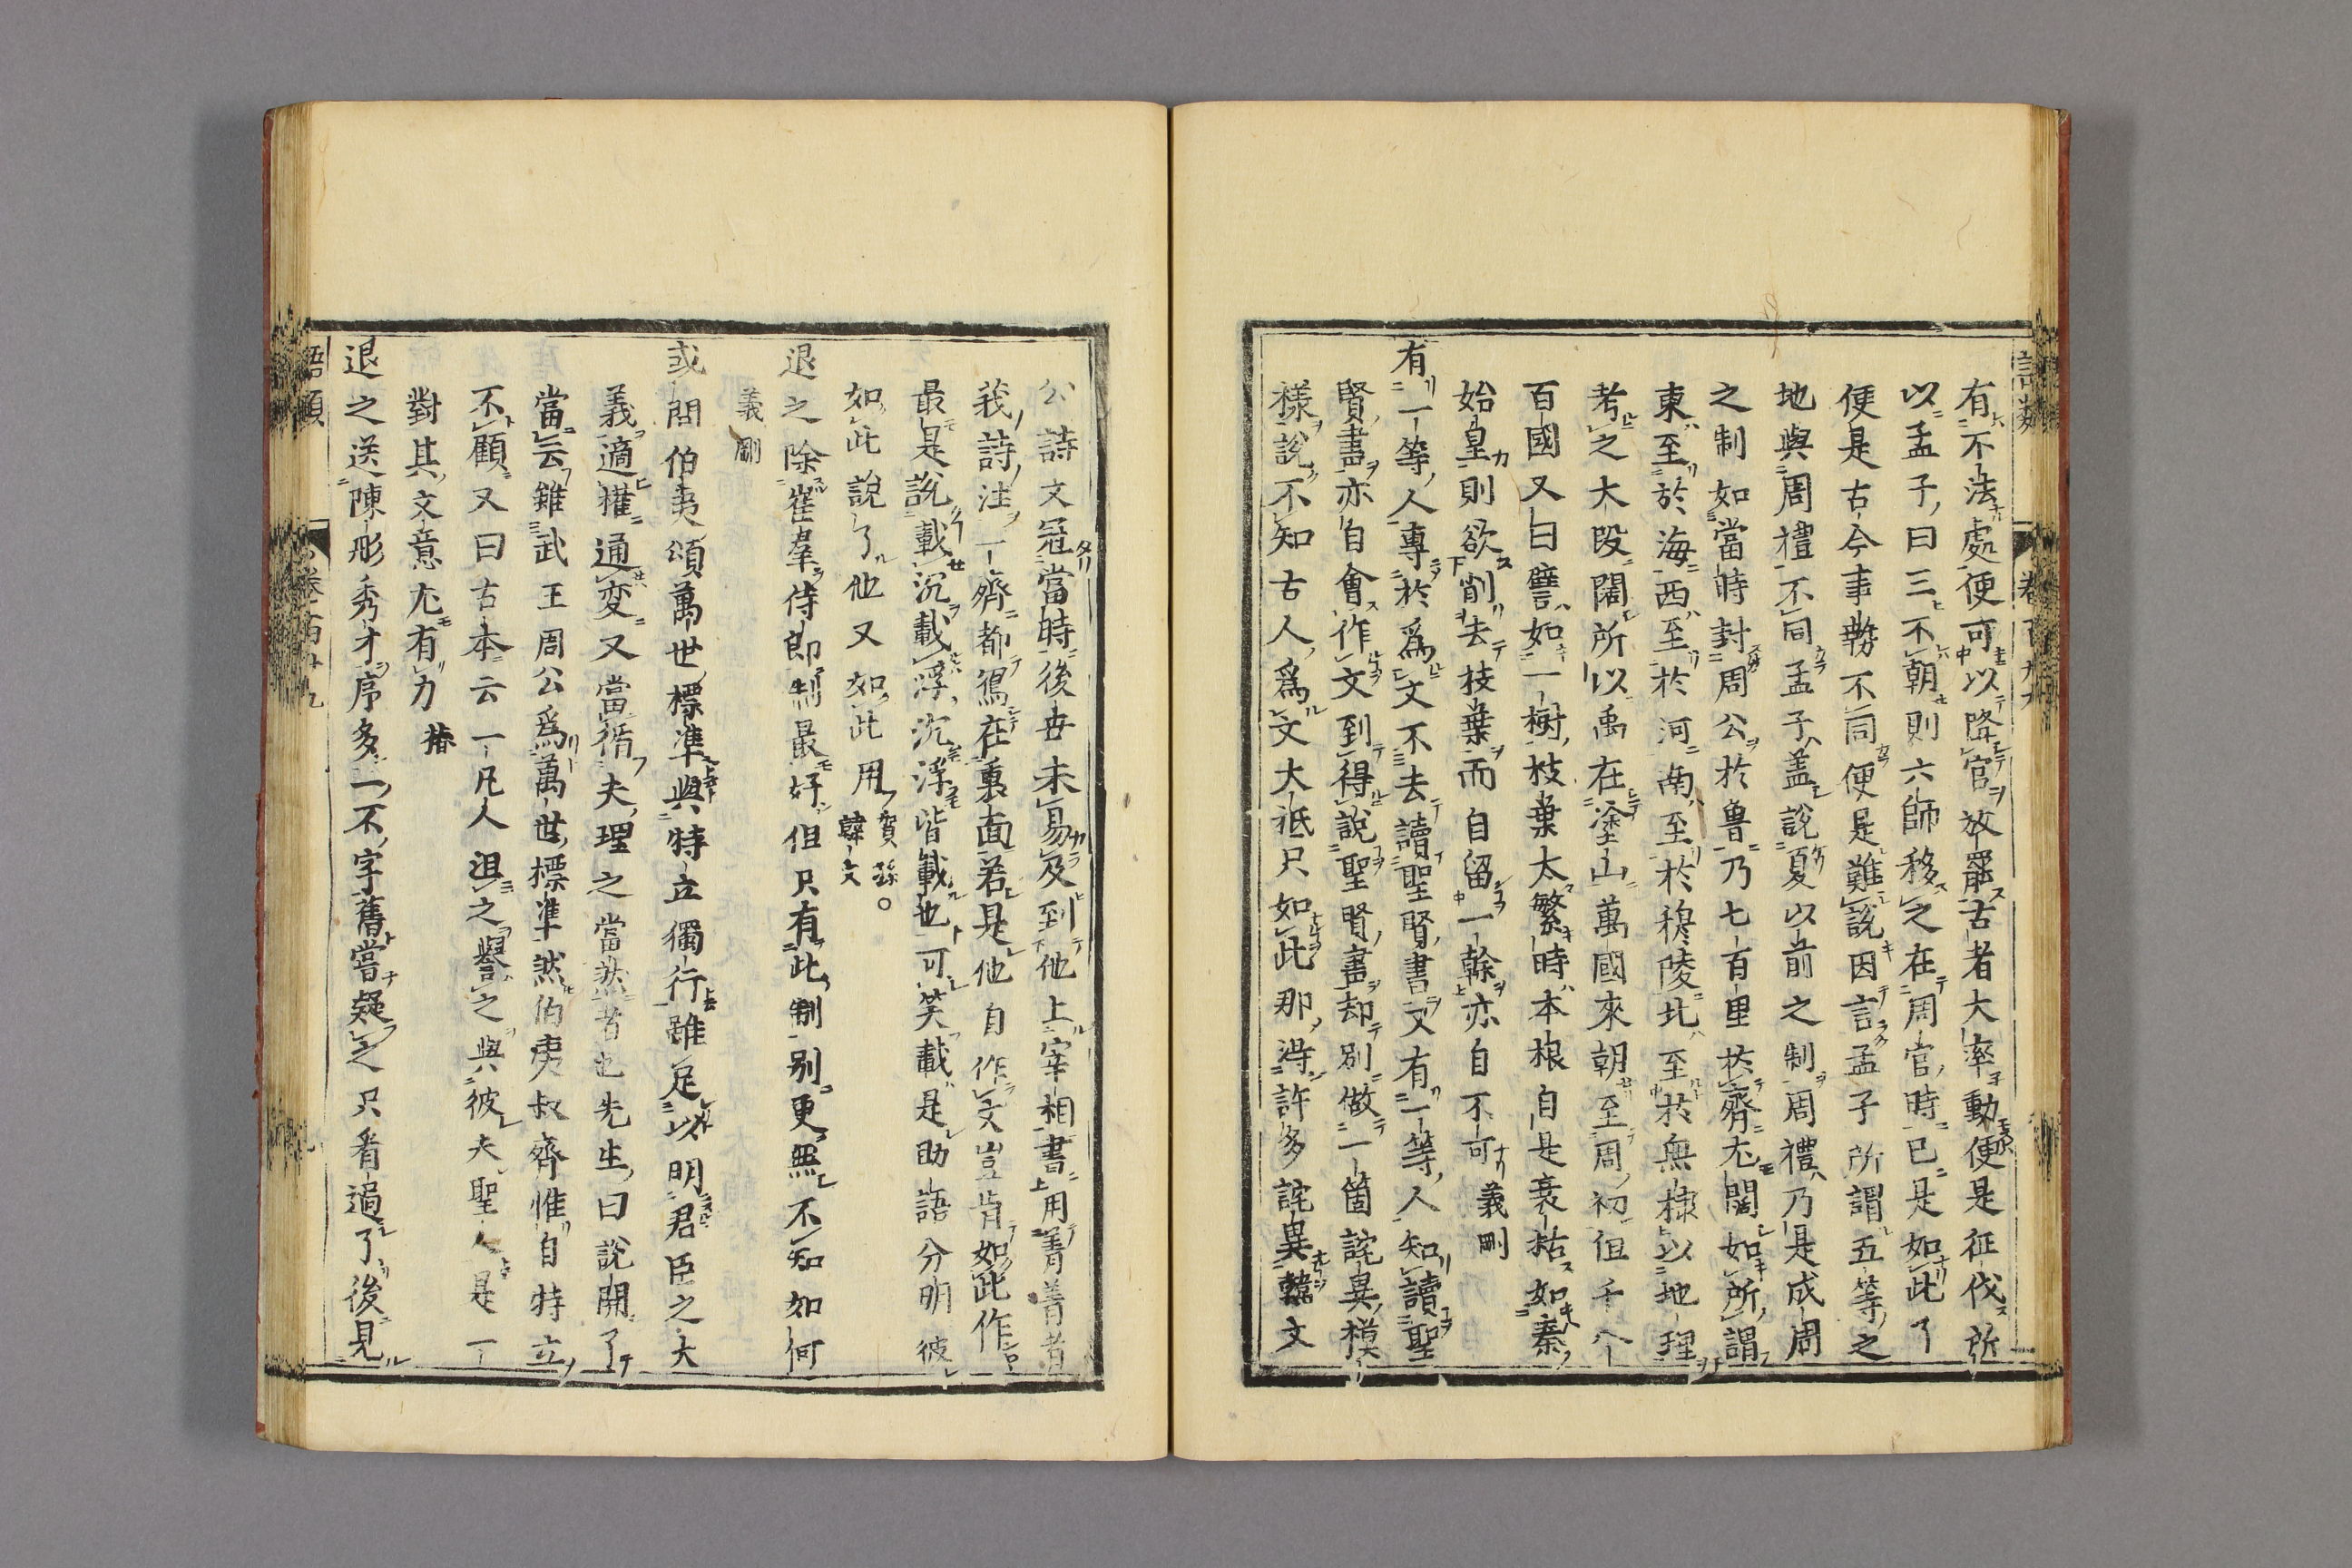 有不法處便可以降官放罷古者大率動便是征伐所
以孟子曰三不朝則六師移之在周官時已是如此了
便是古今事勢不同便是難說因言孟子所謂五等之
地與周禮不同孟子盖說夏以前之制周禮乃是成周
之制如當時封周公於魯乃七百里於齊尤闊如所謂
東至於海西至於河南至於穆陵北至於無棣以地理
考之大段闊所以禹在塗山萬國來朝至周初但千八
百國又曰譬如一樹枝葉太繁時本根自是衰枯如秦
始皇則欲削去枝葉而自留一幹亦自不可義剛
有一等人專於爲文不去讀聖賢書又有一等人知讀聖
賢書亦自會作文到得說聖賢書却別做一箇詫異模
樣說不知古人爲文大祗只如此那得許多詫異韓文
公詩文冠當時後世未易及到他上宰相書用菁菁者
莪詩注一齊都寫在裏面若是他自作文豈肯如此作
最是說載沉載浮沉浮皆載也可笑載是助語分明彼
如此說了他又如此用賀孫。韓文
退之除崔羣侍郎制最好但只有此制别更無不知如何
義剛
或問伯夷頌萬世標準與特立獨行雖足以明君臣之大
義適權通変又當循夫理之當然者也先生曰說開了
當云雖武王周公爲萬世標準然伯夷叔齊惟自特立
不顧又曰古本云一凡人沮之譽之與彼夫聖人是一
對其文意尤有力椿
退之送陳彤秀才序多一不字舊嘗疑之只看過了後見
語類 卷百卅九